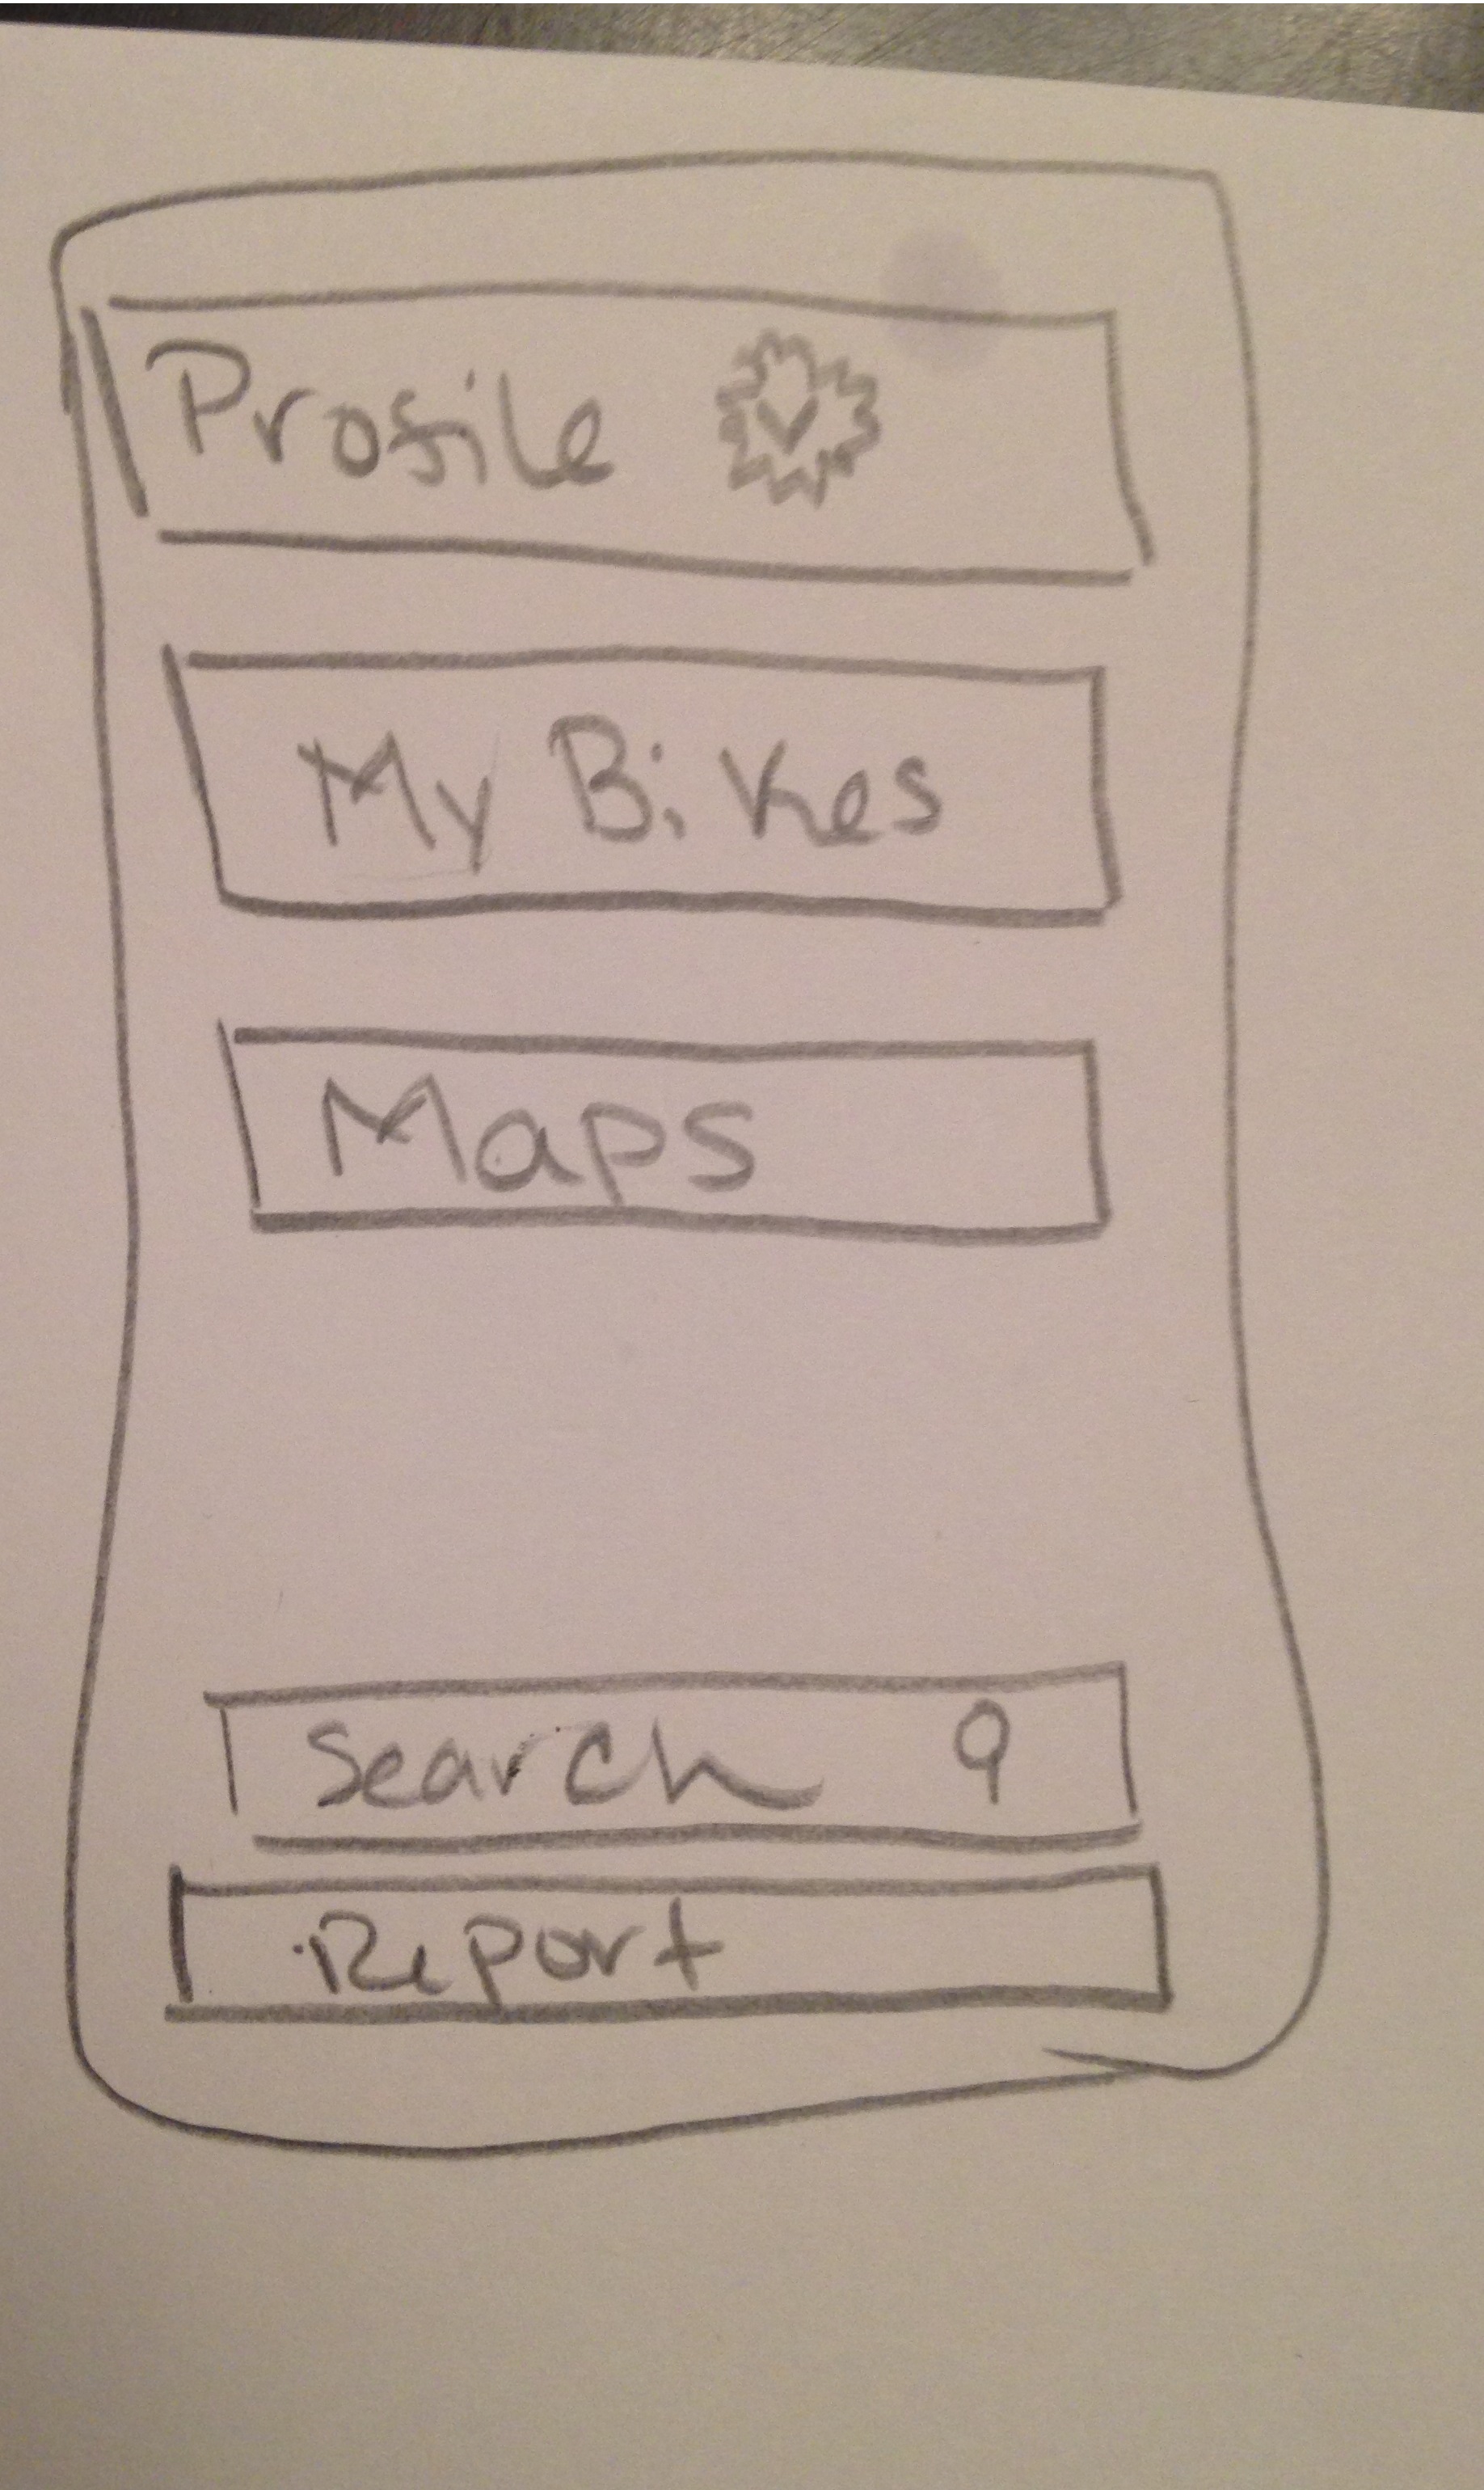 Profile
My Bikes
Maps
Search
Report